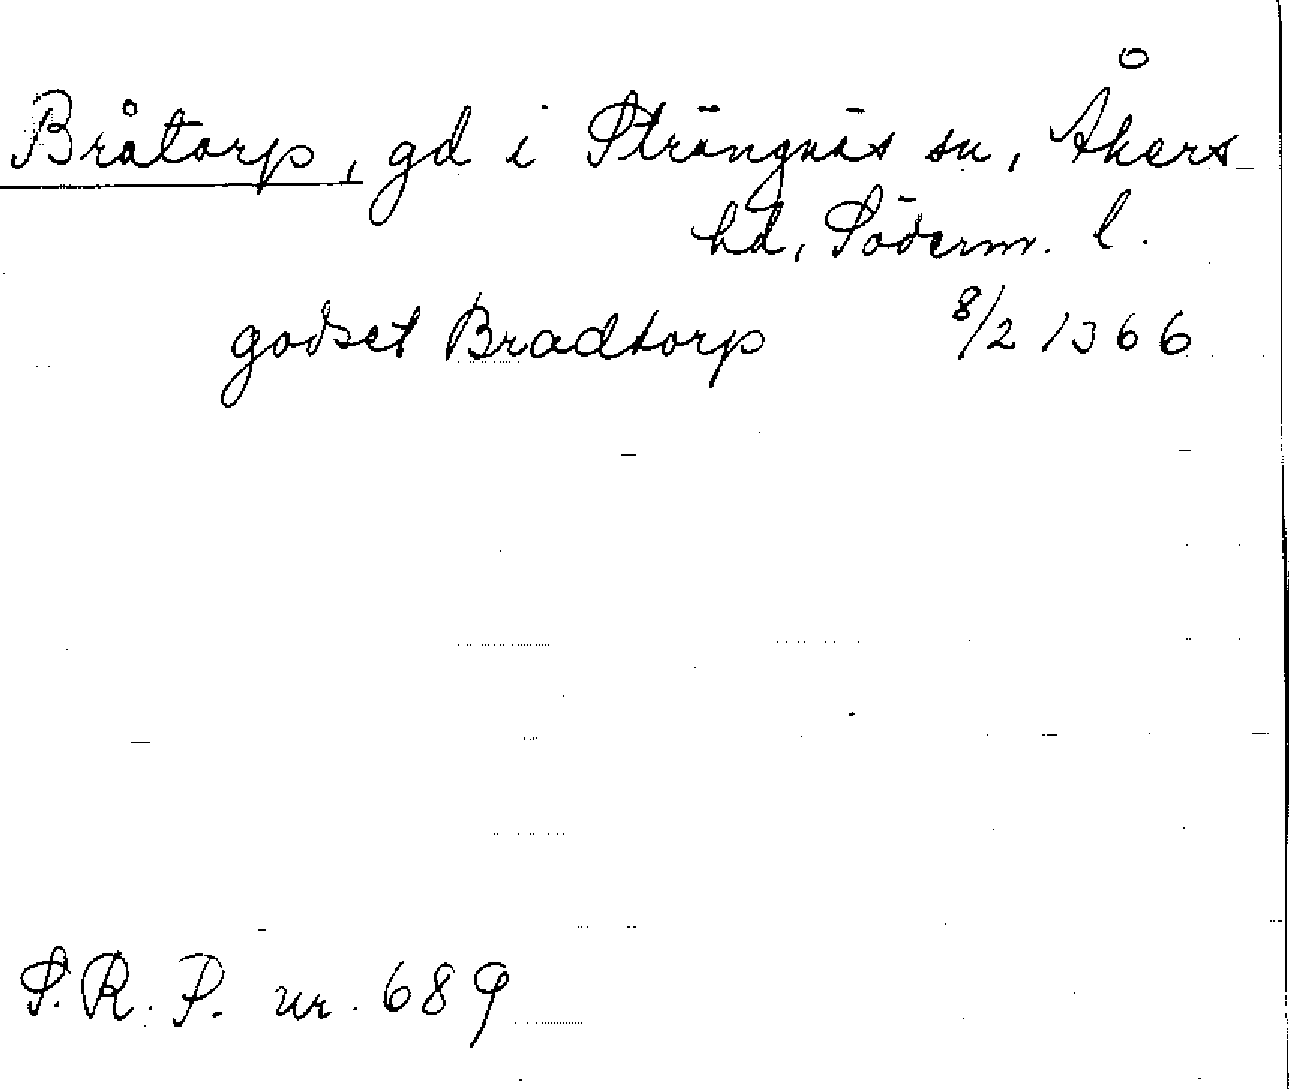 Bråtorp, gd i Strängnäs sn, Åkers
hd, Söderm. l.
godset Bradtorp 8/2 1366
S.R.P. nr. 689